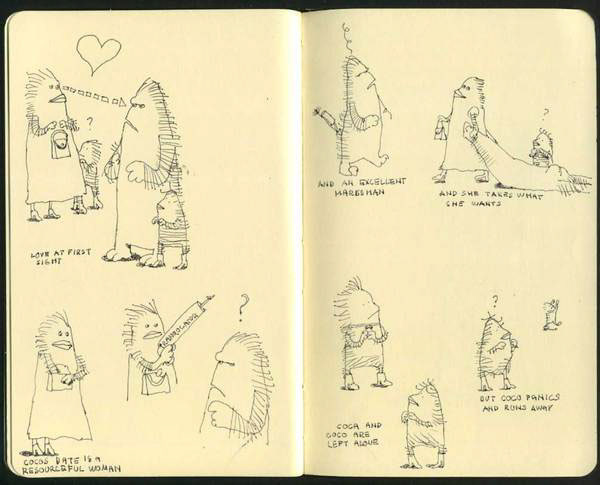 ?
LOVE AT FIRST
SIGHT
?
COCOS DATE IS A
RESOURCEFUL WOMAN
AND AN EXCELLENT
MARKSMAN
?
AND SHE TAKES WHAT
SHE WANTS
COCA AND
COCO ARE
LEFT ALONE
?
BUT COCO PANICS
AND RUNS AWAY